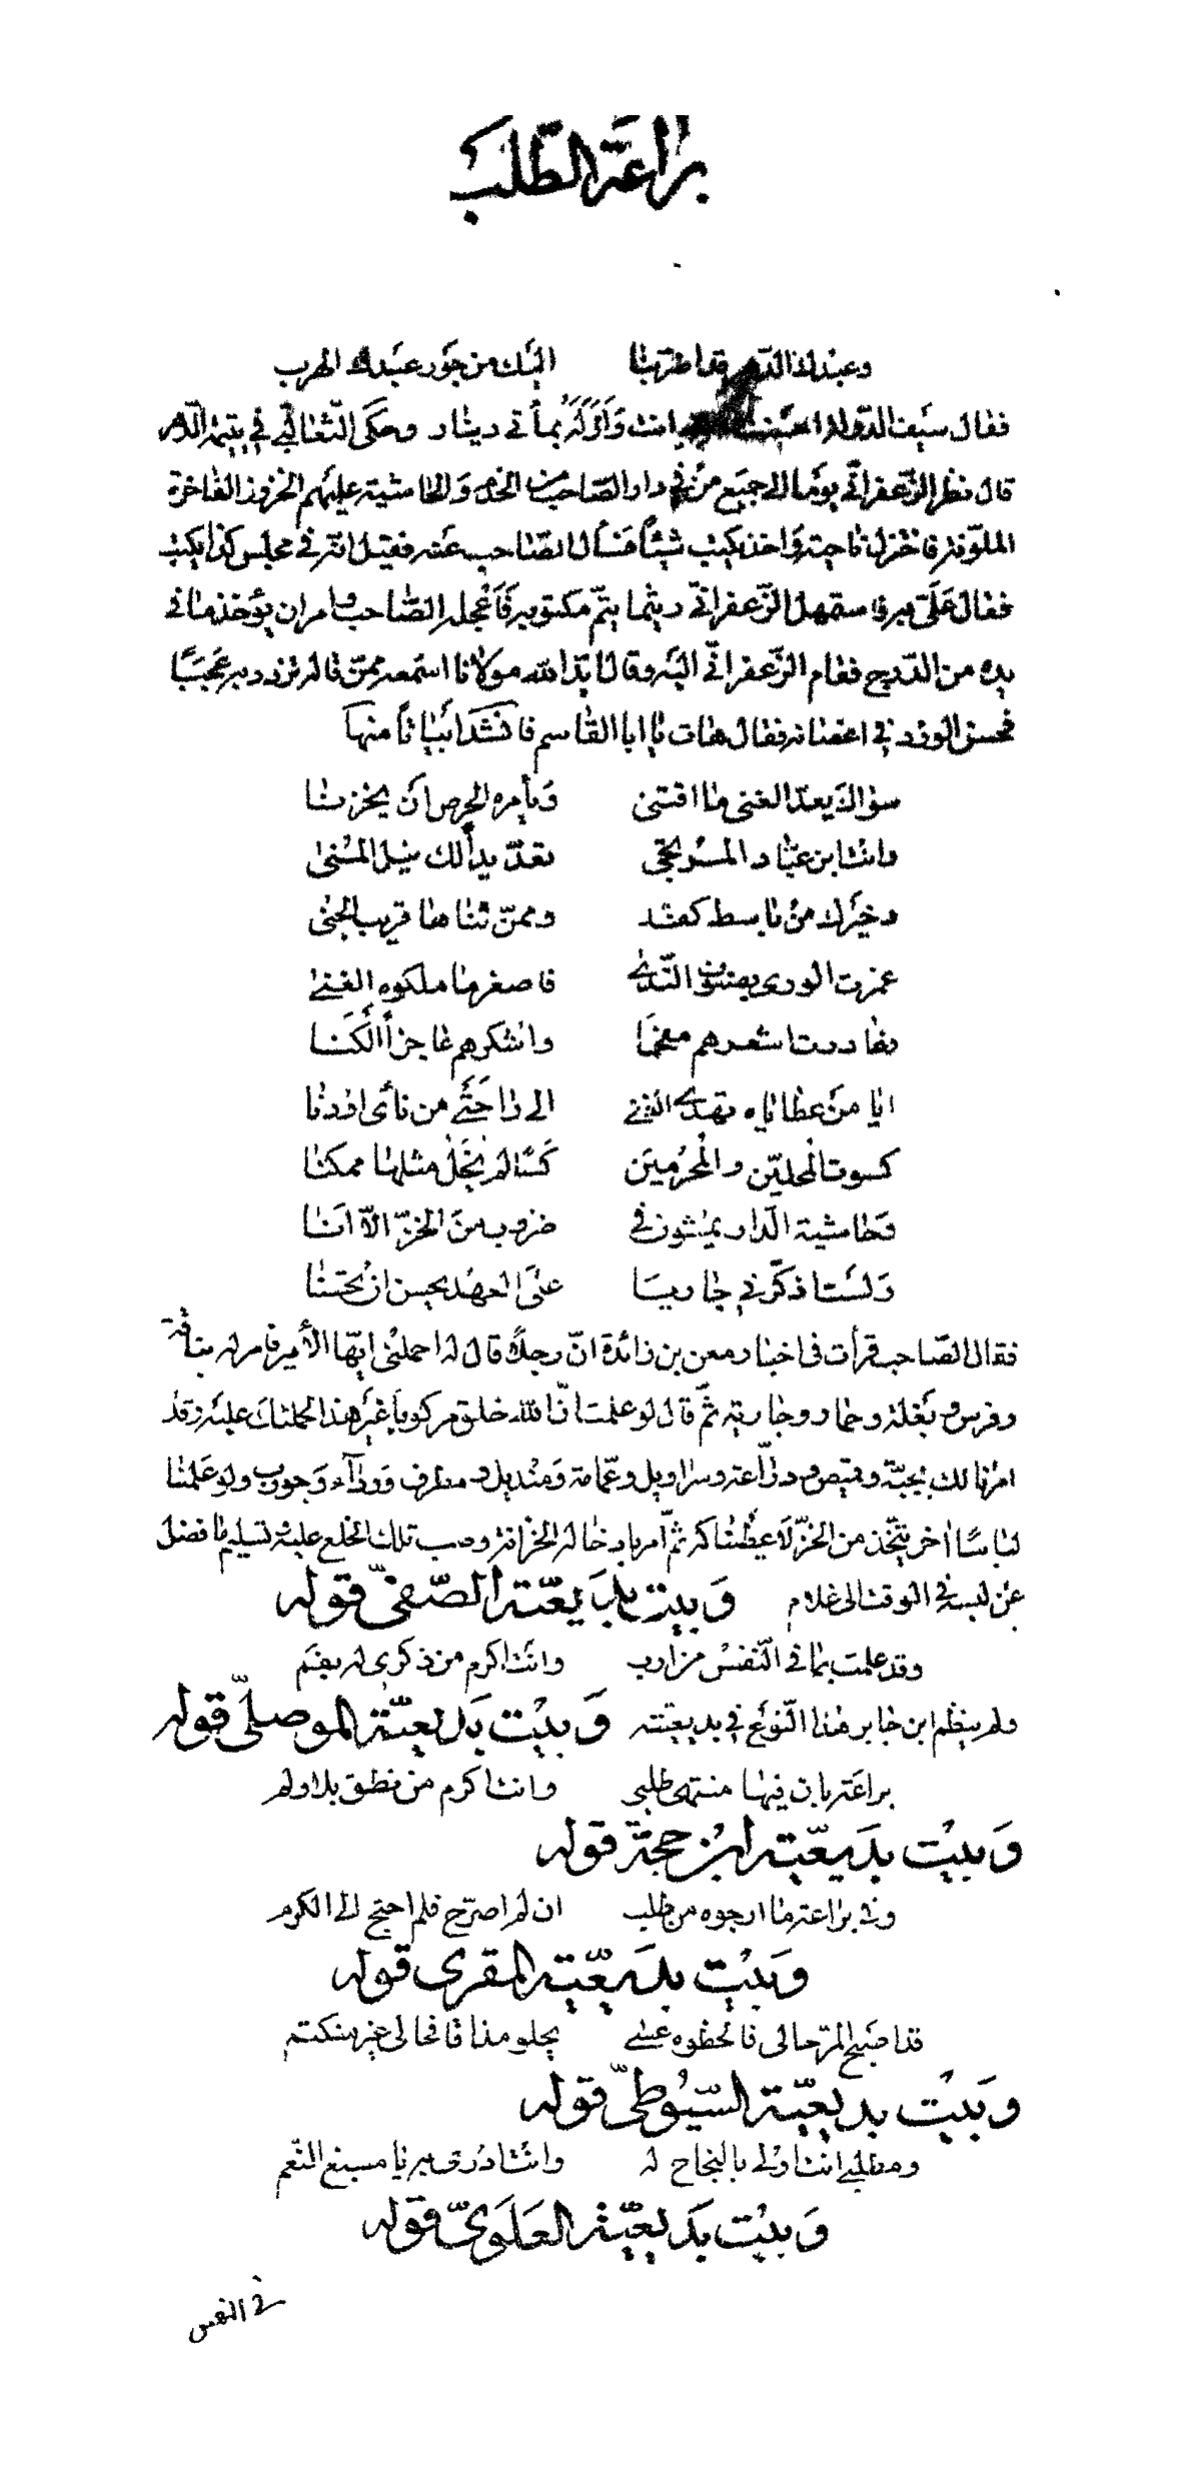 براعة الطلب
وعبدك الدهر قد اضر بنا اليك من جور عبدك الهرب
فقال سيف الدولة احسنت انت وامر له بمأتى دينار وحكى الثعالبى فى يتيمة الدهر
قال نظر الزعفرانى يوما الى جميع من فى دار الصاحب من الخدم والحاشية عليهم الخزوز الفاخرة
الملونة فاعتزل ناحية واخذ يكتب شيئا فسأل الصاحب عنه فقيل انه فى مجلس كذا يكتب
فقال علَىّ به فاستمهل الزعفرانى ريثما يتم مكتوبه فاعجله الصاحب وامر ان يؤخذ ما فى
يده من الدرج فقام الزعفرانى اليه وقال ايد الله مولانا اسمعه ممن قاله تزدد به عجبًا
فحسن الورد فى اغصانه فقال هات يا ابا القاسم فانشد ابياتا منها
سواك يعد الغنى ما اقتنى ويأمره الحرص ان يخزنا
وانت ابن عباد المرتجى تعد يدا لك نيل المنى
وخيرك من باسط كفه وممن ثناها قريب الجنى
غمرت الورى بصنوف الندى فاصغر ما ملكوه الغنى
وغادرت اشعرهم مفحما واشكرهم عاجزا الكنا
ايا من عطاياه تهدى الغنى الى راحتى من نأى او دنا
كسوت المحلين والمحرمين كسًا لم نخل مثلها ممكنا
وحاشية الدار يمشون فى ضروب من الخز الا انا
ولست اذكر فى جاريا على العهد يحسن ان يحسنا
فقال الصاحب قرأت فى اخبار معن بن زائدة ان رجلا قال له احملنى ايها الأمير فامر له بناقة
وفرس وبغلة وحمار وجارية ثم قال لو علمت ان الله خلق مركوبا غير هذا لحملتك عليه وقد
امرنا لك بجبة وقميص ودراعة وسراويل وعمامة ومنديل ومطرف ورداء وجورب ولو علمنا
لباسًا اخر يتخذ من الخز لاعطيناكه ثم امر بادخاله الخزانة وصب تلك الخلع عليه وتسليم ما فضل
عن لبسه فى الوقت الى غلامه وبيت بديعية الصفى قوله
وقد علمت بما فى النفس من ارب وانت اكرم من ذكرى له بفم
ولم ينظم ابن جابر هذا النوع فى بديعيته وبيت بديعية الموصلى قوله
براعة بان فيها منتهى طلبى وانت اكرم من نطق بلا ولم
وبيت بديعية ابن حجة قوله
وفى براعة ما ارجوه من طلب ان لم اصرح فلم احتج الى الكرم
وبيت بديعية المقرى قوله
قد اصبح المرّ حالى فالحظوه عسى يحلو مذاقا فحالى غير منكتم
وبيت بديعية السيوطى قوله
ومطلبى انت اولى بالنجاح له وانت ادرى به يا مسبغ النعم
وبيت بديعية العلوى قوله
فى النفس